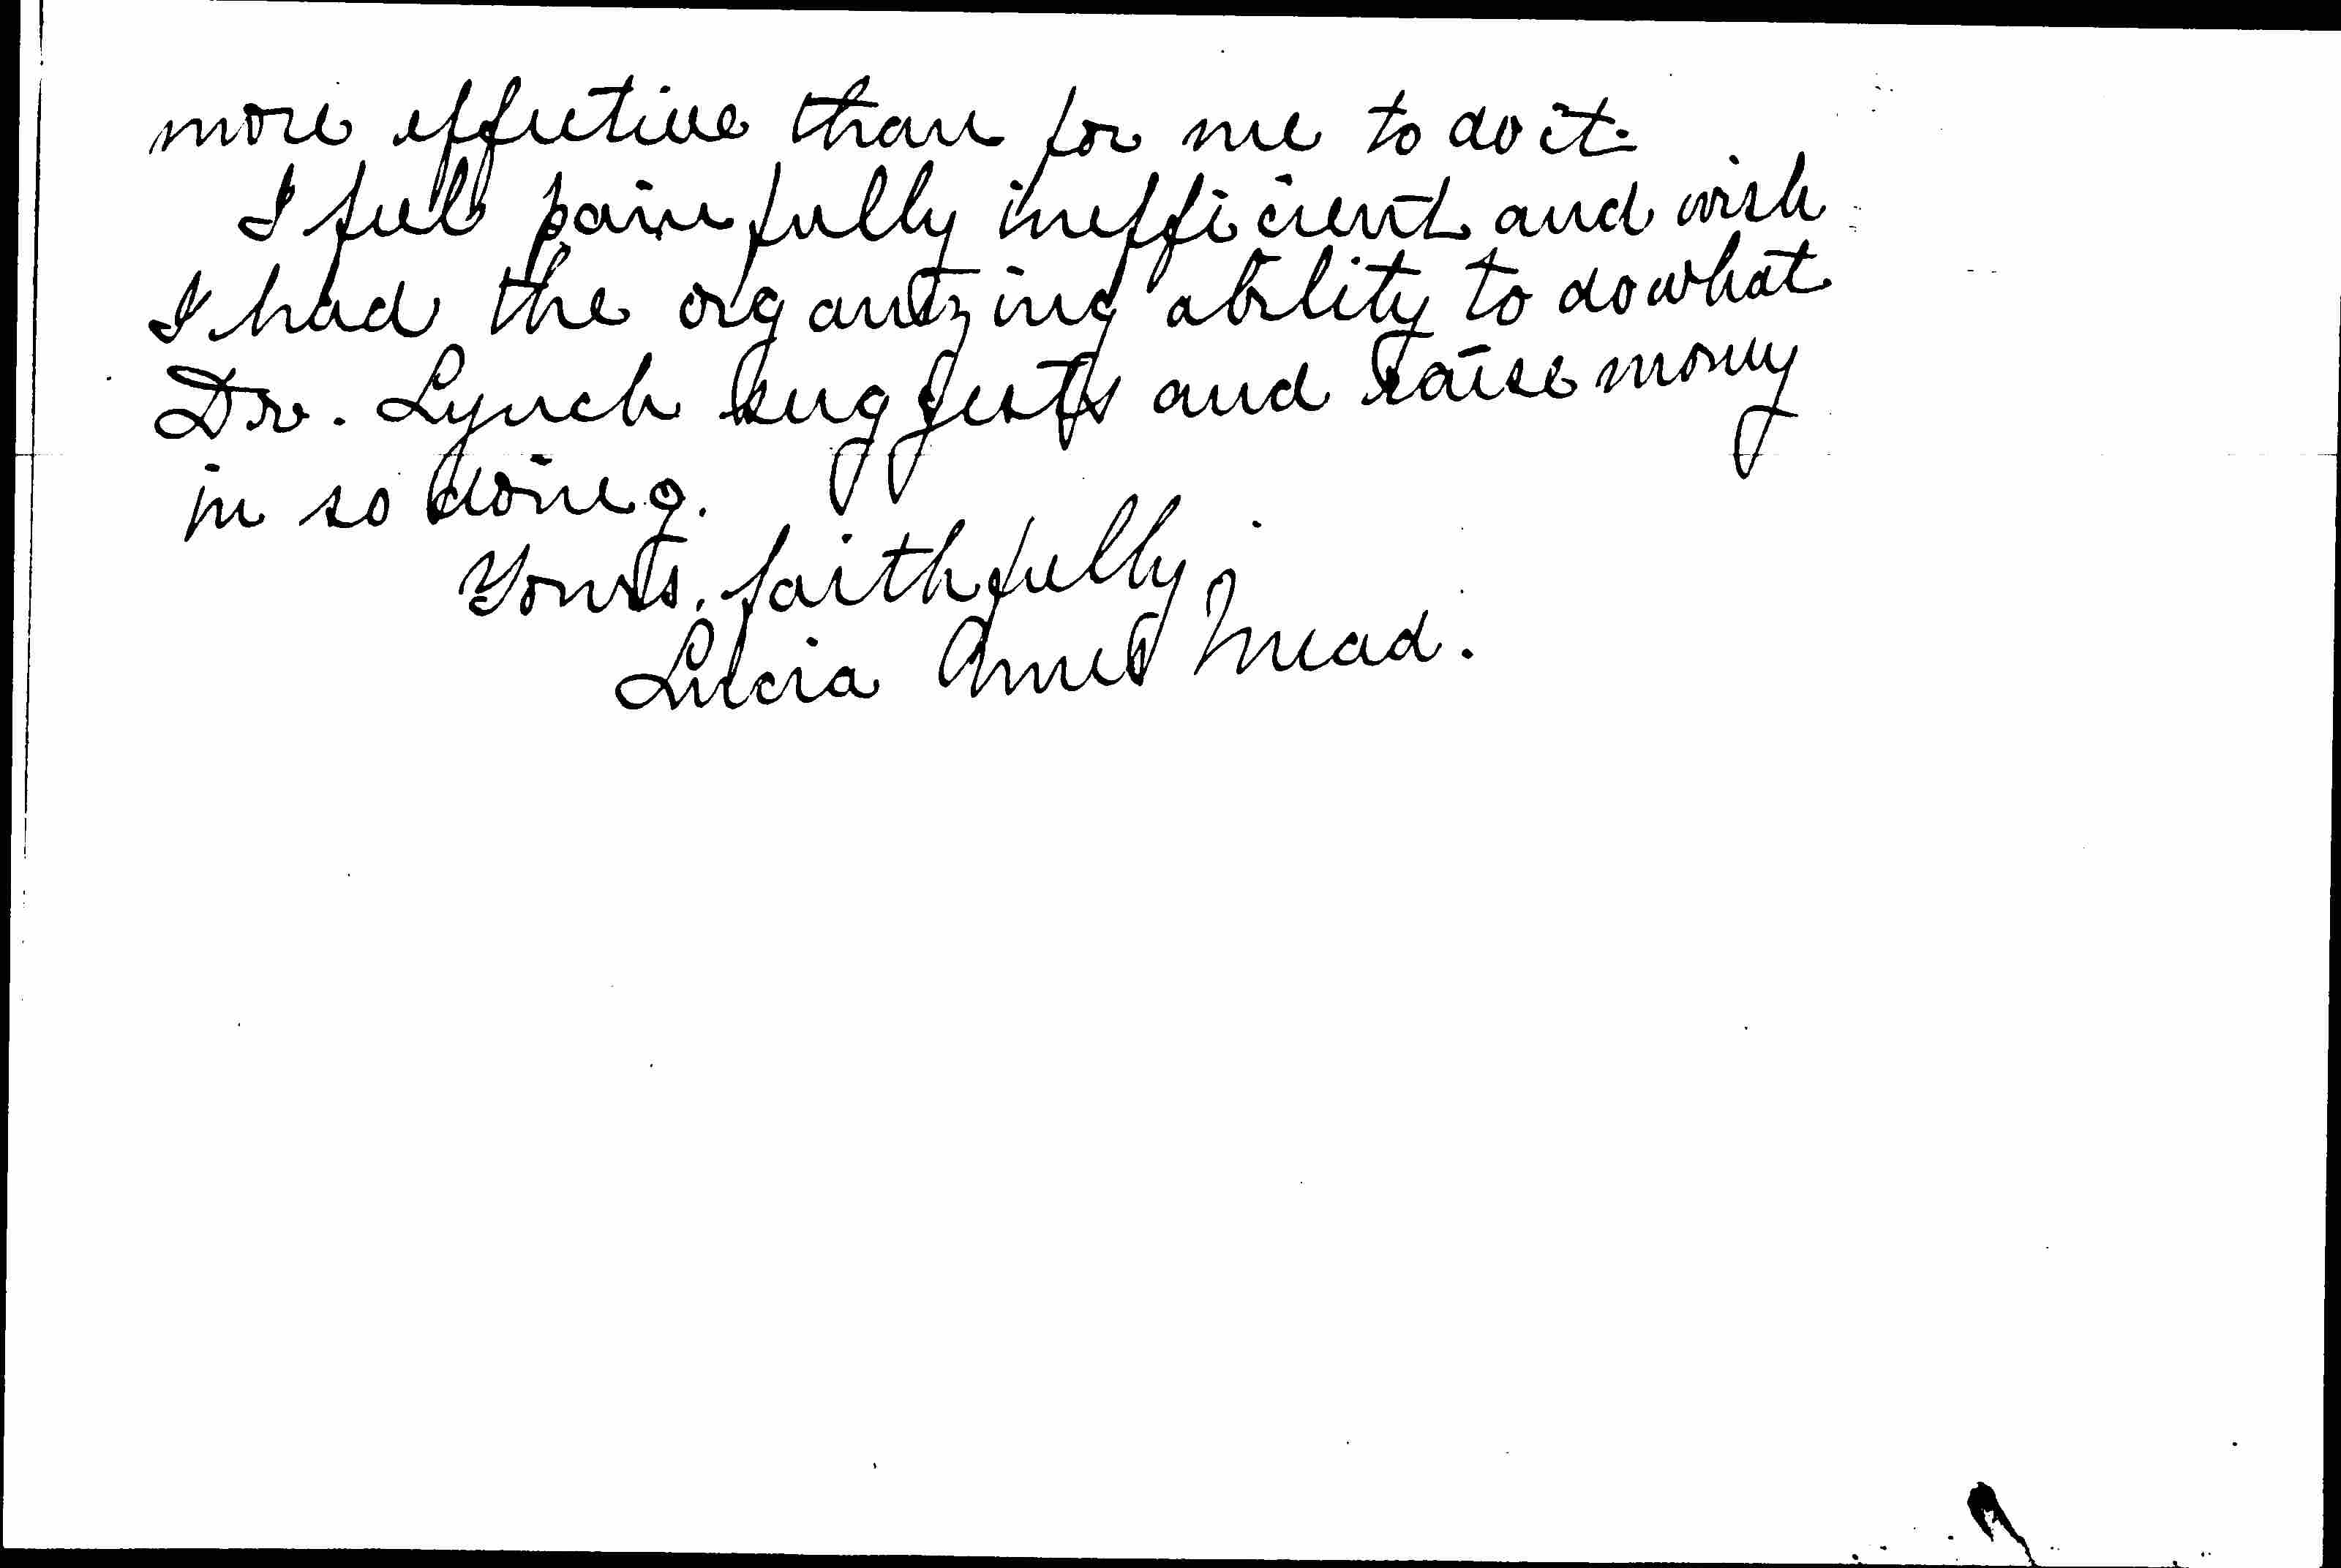 more effective than for me to do it.
I feel painfully inefficient and wish
I had the organizing ability to do what
Dr. Lynch suggests and raise money
in so doing.
Yours faithfully,
Lucia Ames Mead.